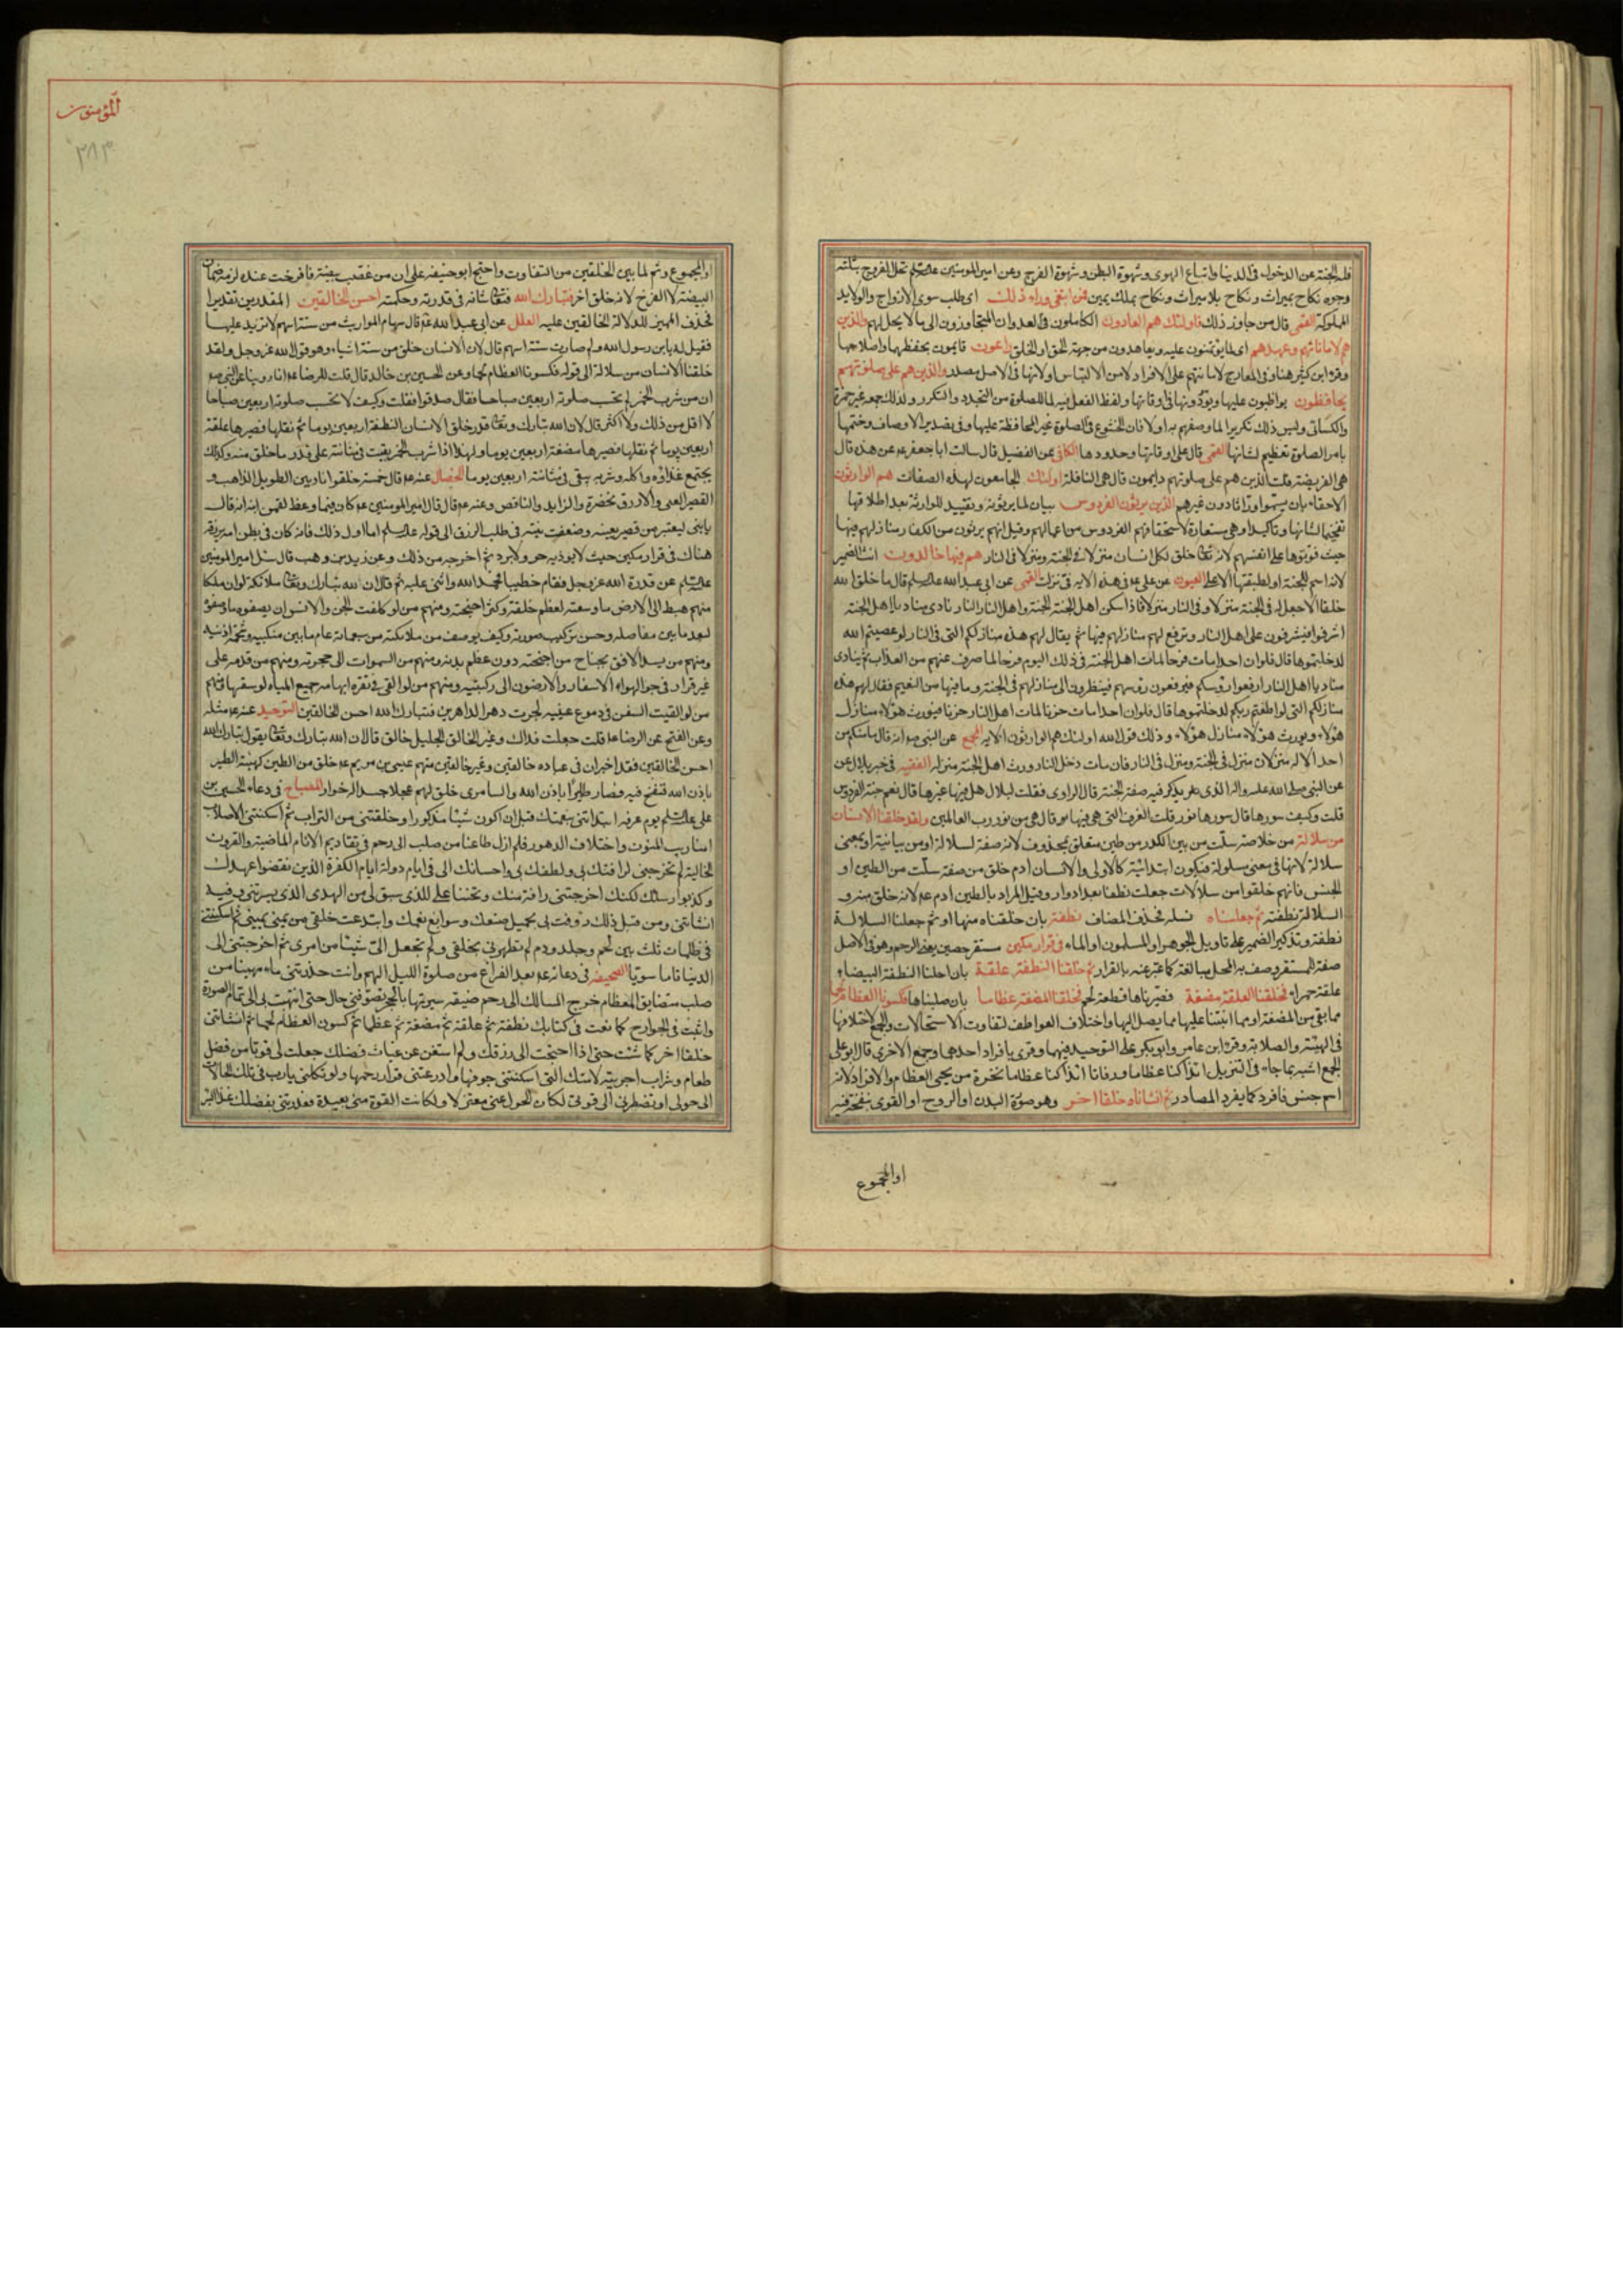 فله الجنة عن الدخول في الدنيا واتباع الهوى وشهوة البطن وشهوة الفرج وعن امير المومنين تحل الفروج بثلثة
وجوه نكاح بميراث ونكاح بلا ميراث ونكاح بملك يمين فمن ابتغى وراء ذلك اى طلب سوى الازواج والولايد
المملوكة القمى قال من جاوز ذلك فاولئك هم العادون الكاملون في العدوان المتجاوزون الى ما لا يحل لهم والذين
هم لاماناتهم وعهدهم اى لما يؤتمنون عليه ويعاهدون من جهة الحق او الخلق راعون قايمون بحفظها واصلاحها
وقرء ابن كثير هنا وفي المعارج لامانتهم على الافراد ولامن الالتباس او لانها في الاصل مصدر والذين هم على صلوتهم
يحافظون يواظبون عليها ويؤدونها في اوقاتها ولفظ الفعل فيه لما للصلوة من التجدد والتكرر ولذلك جمعه غير حمزة
والكسائى وليس ذلك تكريرا لما وصفهم به اولا فان الخشوع في الصلوة غير المحافظة عليها وفي تصدير الاوصاف وختمها
بامر الصلوة تعظيم لشانها القمى قال على اوقاتها وحدودها الكافي عن الفضيل قال سالت ابا جعفر ع عن هذه قال
هى الفريضة قلت الذين هم على صلوتهم دايمون قال هى النافلة اولئك الجامعون لهذه الصفات هم الوارثون
الاحقاء بان يسموا وراثا دون غيرهم الذين يرثون الفردوس بيان لما يرثونه وتقييد للوارثة بعد اطلاقها
تفخيما لشانها وتاكيدا وهى مستعارة لاستحقاقهم الفردوس من اعمالهم وقيل انهم يرثون من الكفار منازلهم فيها
حيث فوتوها على انفسهم لانه تعالى خلق لكل انسان منزلا في الجنة ومنزلا في النار هم فيها خالدون انث الضمير
لانه اسم للجنة او لطبقتها الاعلى العيون عن على ع في هذه الاية في نزلت القمى عن ابى عبد الله قال ما خلق الله
خلقا الا جعل له في الجنة منزلا وفي النار منزلا فاذا سكن اهل الجنة الجنة واهل النار النار نادى مناد يا اهل الجنة
اشرفوا فيشرفون على اهل النار وترفع لهم منازلهم فيها ثم يقال لهم هذه منازلكم التى في النار لو عصيتم الله
لدخلتموها قال فلو ان احدا مات فرحا لمات اهل الجنة في ذلك اليوم فرحا لما صرف عنهم من العذاب ثم ينادى
مناد يا اهل النار ارفعوا رؤسكم فيرفعون رؤسهم فينظرون الى منازلهم في الجنة وما فيها من النعيم فيقال لهم هذه
منازلكم التى لو اطعتم ربكم لدخلتموها قال فلو ان احدا مات حزنا لمات اهل النار حزنا فيورث هؤلاء منازل
هؤلاء ويورث هؤلاء منازل هؤلاء وذلك قول الله اولئك هم الوارثون الاية المجمع عن النبى ص انه قال ما منكم من
احد الا له منزلان منزل في الجنة ومنزل في النار فان مات ودخل النار ورث اهل الجنة منزله الفقيه في خبر بلال عن
عن النبى صلى الله عليه واله الذى يذكر فيه صفة الجنة قال الراوى فقلت لبلال هل فيها غيرها قال نعم جنة الفردوس
قلت وكيف سورها قال سورها نور قلت الغرف التى هى فيها قال هى من نور رب العالمين ولقد خلقنا الانسان
من سلالة من خلاصة سلت من بين الكدر من طين متعلق بمحذوف لانه صفة لسلالة او من بيانية او بمعنى
سلالة لانها في معنى مسلولة فيكون ابتدائية كالاولى والانسان ادم خلق من صفة سلت من الطين او
الجنس فانهم خلقوا من سلالات جعلت نطفا بعد ادوار وقيل المراد بالطين ادم ع لانه خلق منه و
السلالة نطفته ثم جعلناه نسله فحذف المضاف نطفة بان خلقناه منها او ثم جعلنا السلالة
نطفة وتذكير الضمير على تاويل الجوهر او المسلول او الماء في قرار مكين مستقر حصين يعنى الرحم وهو في الاصل
صفة للمستقر وصف به المحل مبالغة كما عبر عنه بالقرار ثم خلقنا النطفة علقة بان احلنا النطفة البيضاء
علقة حمراء فخلقنا العلقة مضغة فصيرناها قطعة لحم فخلقنا المضغة عظاما بان صلبناها فكسونا العظام لحما
مما بقى من المضغة او مما انبتنا عليها مما يصل اليها واختلاف العواطف لتفاوت الاستحالات والجمع لاختلافها
في الهيئة والصلابة وقرء ابن عامر وابو بكر على التوحيد فيهما وقرئ بافراد احدهما وجمع الاخرى قال ابو على
الجمع اشبه بما جاء في التنزيل ائذا كنا عظاما ورفاتا ائذا كنا عظاما نخرة من يحى العظام والافراد لانه
اسم جنس فافرد كما يفرد المصادر ثم انشاناه خلقا اخر وهو صورة البدن او الروح او القوى بنفخه فيه
او المجموع
المؤمنون
٢٨٣
او المجموع وثم لما بين الخلقين من التفاوت واحتج ابو حنيفه على ان من غصب بيضة فافرخت عنده لزمه ضمان
البيضة لا الفرخ لانه خلق اخر فتبارك الله فتعالى شانه في قدرته وحكمته احسن الخالقين المقدرين تقديرا
فحذف المميز لدلالة الخالقين عليه العلل عن ابى عبد الله ع قال سهام المواريث من ستة اسهم لا تزيد عليها
فقيل له يا بن رسول الله ولم صارت ستة اسهم قال لان الانسان خلق من ستة اشياء وهو قول الله عز وجل ولقد
خلقنا الانسان من سلالة الى قوله فكسونا العظام لحما وعن الحسين بن خالد قال قلت للرضا ع انا روينا عن النبى ص
ان من شرب الخمر لم تحسب صلوته اربعين صباحا فقال صدقوا فقلت وكيف لا تحسب صلوته اربعين صباحا
لا اقل من ذلك ولا اكثر قال لان الله تبارك وتعالى قدر خلق الانسان النطفة اربعين يوما ثم نقلها فصيرها علقة
اربعين يوما ثم نقلها فصيرها مضغة اربعين يوما ولهذا اذا شرب الخمر بقيت في مثانته على قدر ما خلق منه وكذلك
يجتمع غذاؤه واكله وشربه يبقى في مثانته اربعين يوما الخصال عنه ع قال خمسة خلقوا ناريين الطويل الذاهب و
القصير القمى والازرق بخضرة والزايد والناقص وعنه ع قال قال امير المومنين ع كان فيما وعظ لقمن ابنه انه قال
يا بنى ليعتبر من قصر يقينه وضعفت نيته في طلب الرزق الى قوله اما اول ذلك فانه كان في بطن امه يرزقه
هناك في قرار مكين حيث لا يؤذيه حر ولا برد ثم اخرجه من ذلك وعن زيد بن وهب قال سئل امير المومنين
عن قدرة الله عز وجل فقام خطيبا فحمد الله واثنى عليه ثم قال ان لله تبارك وتعالى ملائكة لو ان ملكا
منهم هبط الى الارض ما وسعته لعظم خلقته وكثرة اجنحته ومنهم من لو كلفت الجن والانس ان يصفوه ما وصفوه
لبعد ما بين مفاصله وحسن تركيب صورته وكيف يوصف من ملائكته من سبعمائة عام ما بين منكبيه وشحمة اذنيه
ومنهم من يسد الافق بجناح من اجنحته دون عظم بدنه ومنهم من السموات الى حجزته ومنهم من قدمه على
غير قرار في جو الهواء الاسفل والارضون الى ركبتيه ومنهم من لو القى في نقرة ابهامه جميع المياه لوسعتها ومنهم
من لو القيت السفن في دموع عينيه لجرت دهر الداهرين فتبارك الله احسن الخالقين التوحيد عنه ع مثله
وعن الفتح عن الرضا ع قلت جعلت فداك وغير الخالق الجليل خالق قال ان الله تبارك وتعالى يقول تبارك الله
احسن الخالقين فقد اخبر ان في عباده خالقين وغير خالقين منهم عيسى بن مريم ع خلق من الطين كهيئة الطير
باذن الله فنفخ فيه فصار طايرا باذن الله والسامرى خلق لهم عجلا جسدا له خوار المصباح في دعاء الحسين بن
على يوم عرفة ابتداتنى بنعمتك قبل ان اكون شيئا مذكورا وخلقتنى من التراب ثم اسكنتنى الاصلاب
امنا ريب المنون واختلاف الدهور فلم ازل ظاعنا من صلب الى رحم في تقادم الايام الماضية والقرون
الخالية لم تخرجنى لرافتك بى ولطفك بى واحسانك الى في ايام دولة ايام الكفرة الذين نقضوا عهدك
وكذبوا رسلك لكنك اخرجتنى رافة منك وتحننا على للذى سبق لى من الهدى الذى يسرتنى وفيه
انشاتنى ومن قبل ذلك رؤفت بى بجميل صنعك وسوابغ نعمك وابتدعت خلقى من منى يمنى ثم اسكنتنى
في ظلمات ثلث بين لحم وجلد ودم لم تشهرنى بخلقى ولم تجعل الى شيئا من امرى ثم اخرجتنى الى
الدنيا تاما سويا الصحيفة في دعائه ع بعد الفراغ من صلوة الليل اللهم وانت حدرتنى ماء مهينا من
صلب متضايق العظام حرج المسالك الى رحم ضيقة سترتها بالحجب تصرفنى حال حتى انتهت بى الى تمام الصورة
واثبت في الجوارح كما نعت في كتابك نطفة ثم علقة ثم مضغة ثم عظما ثم كسوت العظام لحما ثم انشاتنى
خلقا اخر كما شئت حتى اذا احتجت الى رزقك ولم استغن عن غياث فضلك جعلت لى قوتا من فضل
طعام وشراب اجريته لامتك التى اسكنتنى جوفها واودعتنى قرار رحمها ولو تكلنى يا رب في تلك الحالات
الى حولى او تضطرنى الى قوتى لكان الحول عنى معتزلا ولكانت القوة منى بعيدة فغذوتنى بفضلك غذاء البر